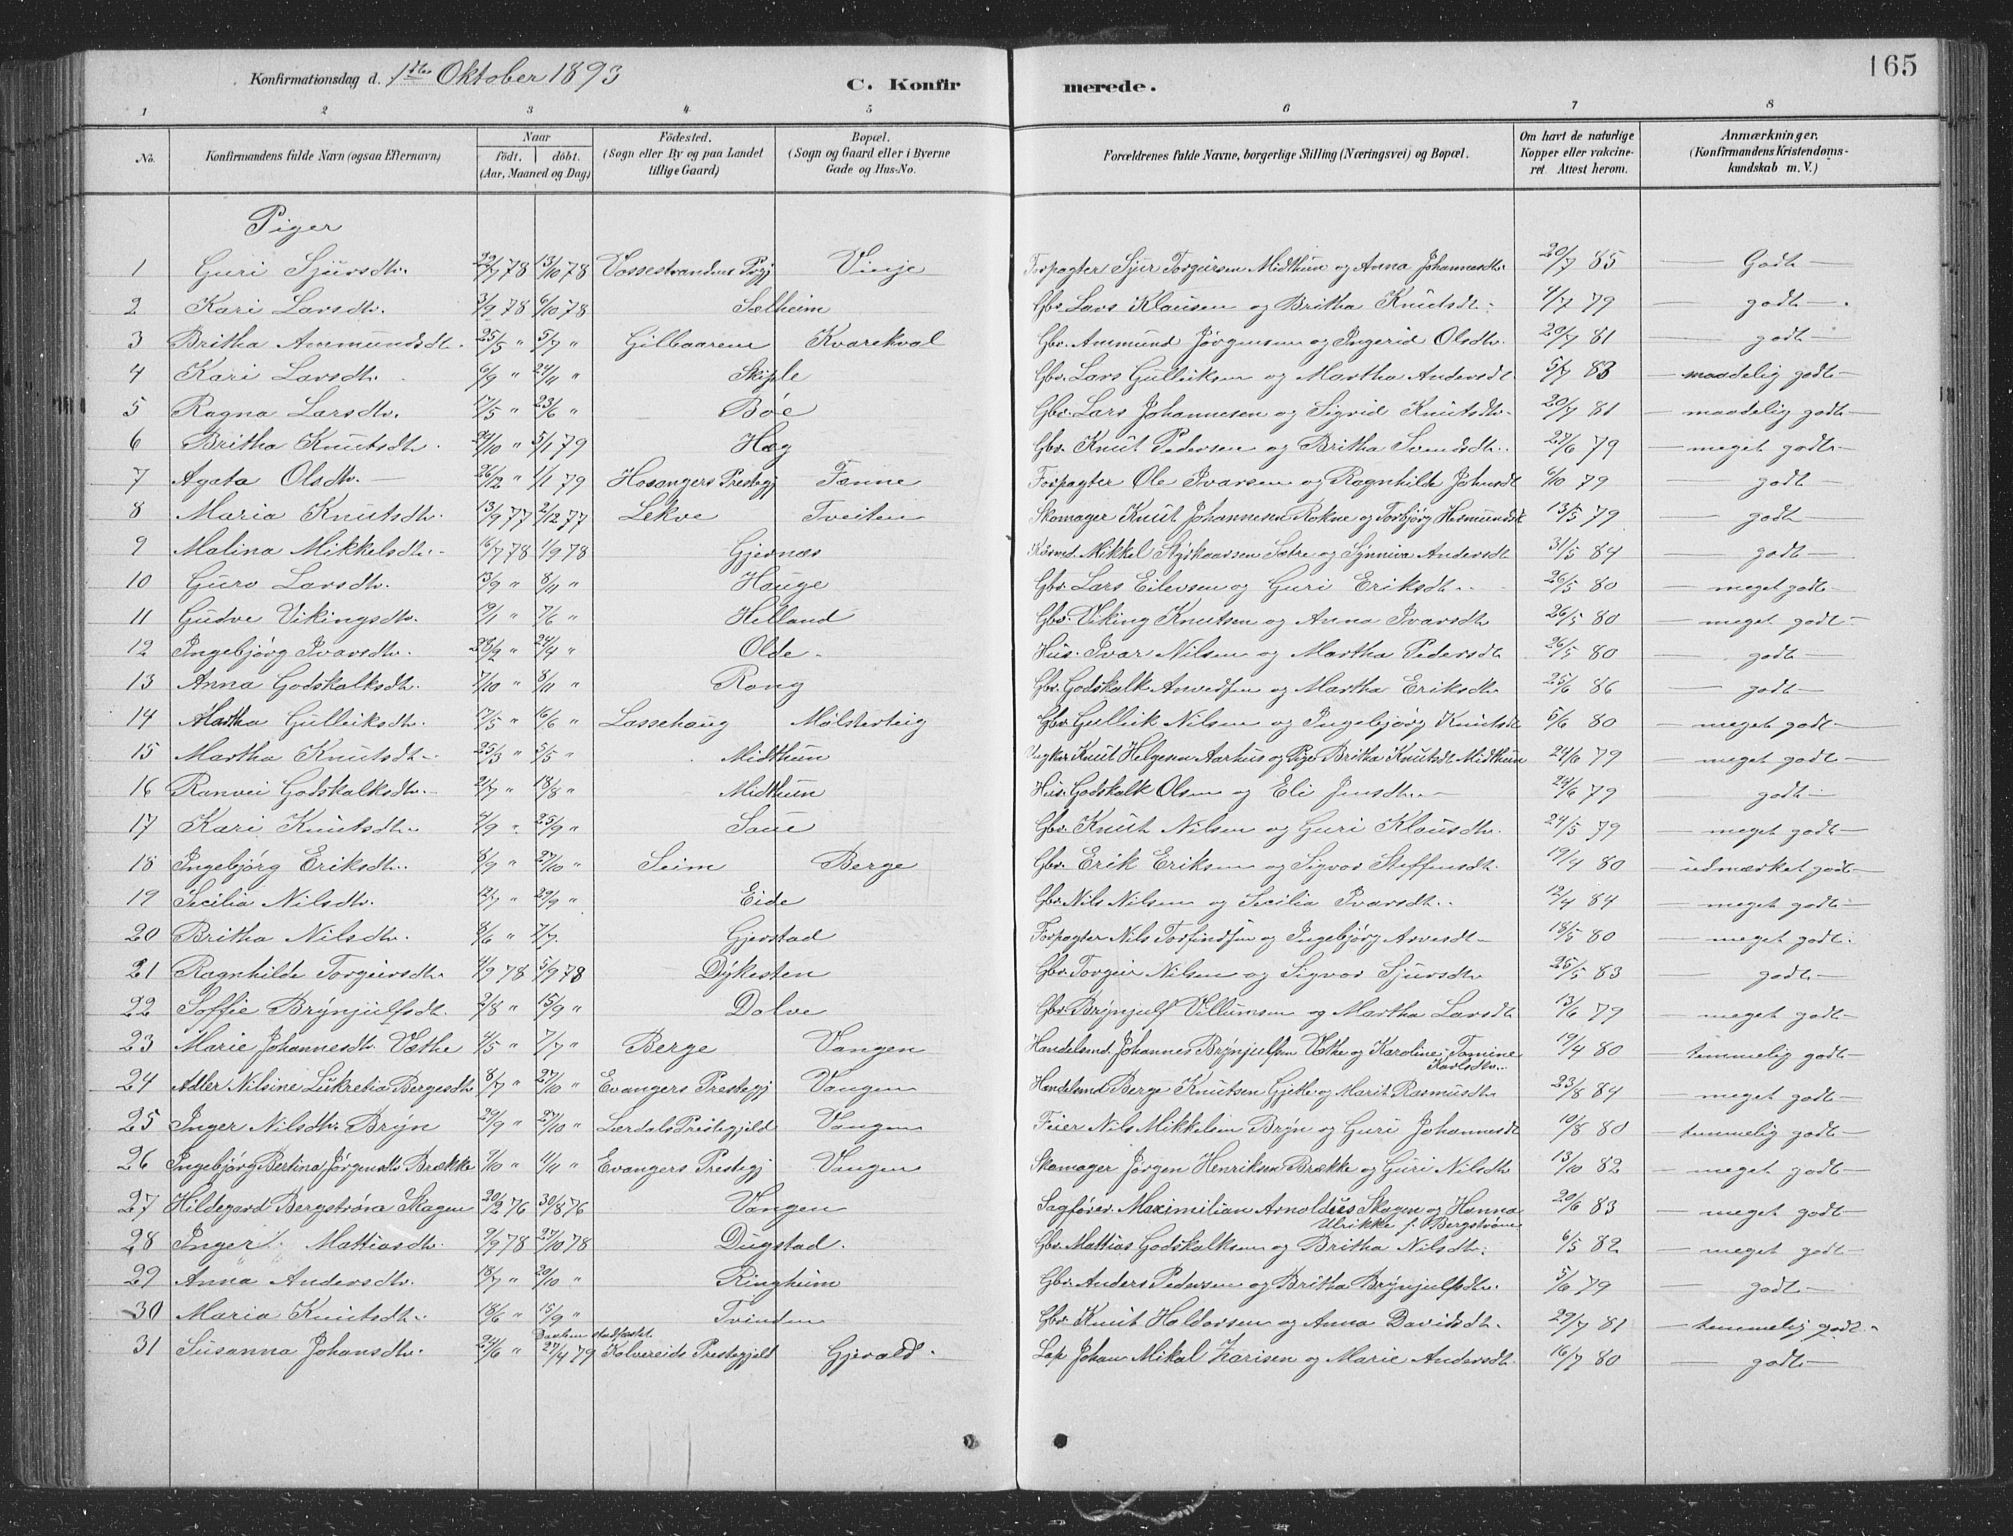 165
Konfirmationsdag d. 1ste Oktober 1893
C. Konfir merede.
1 2 3 4 5 6 7 8
No. Konfirmandens fulde Navn (ogsaa Efternavn) Naar födt. döbt. (Aar, Maaned og Dag) Födested. (Sogn eller By og paa Landet tillige Gaard) Bopæl. (Sogn og Gaard eller i Byerne Gade og Hus-No. Forældrenes fulde Navne, borgerlige Stilling (Næringsvei) og Bopæl. Om havt de naturlige Kopper eller vakcineret. Attest herom. Anmærkninger. (Konfirmandens Kristendomskundskab m. V.)
Piger
1 Guri Sjursdtr. 22/7 78 13/10 78 Vossestrandens Prgj Vinje Forpagter Sjur Torgeirsen Midthun og Anna Johannesdtr 20/7 85 — Godt —
2 Kari Larsdtr. 3/9 78 6/10 78 Sælheim Gbr. Lars Klausen og Britha Knutsdt. 4/7 79 — godt —
3 Britha Ammundsdt. 25/5 " 5/7 " Gilbaarene Kvarekval Gbr. Ammund Jørgensen og Ingerid Olsdtr. 20/7 81 — godt —
4 Kari Larsdtr. 6/9 " 24/11 " Skiple Gbr. Lars Gulleiksen og Martha Andersdt. 5/7 83 — maadelig godt —
5 Ragna Larsdtr. 17/5 " 23/6 " Bøe Gbr. Lars Johannesen og Sigvid Knutsdtr. 20/7 81 — maadelig godt —
6 Britha Knutsdtr. 24/10 " 5/1 79 Hæg Gbr. Knut Pedersen og Britha Svendsdtr. 27/6 79 — meget godt —
7 Agata Olsdtr. — 26/12 " 1/1 79 Hosangers Prestegj Fænne Forpagter Ole Ivarsen og Ragnhilde Johnsdt 6/10 79 — godt —
8 Maria Knutsdtr. 13/9 77 2/12 77 Lekve Tveiten Skomager Knut Johannesen Rokne og Torbjørg Hermundsdt 13/5 79 — godt —
9 Malina Mikkelsdtr. 6/7 78 1/9 78 Gjernæs Mikkel Styrkaarsen Sætre og Synneva Andersdt 31/5 84 — godt —
10 Guro Larsdtr. 13/9 " 8/11 " Hauge Gbr. Lars Eilevsen og Guri Eriksdt. 26/5 80 — meget godt —
11 Gudve Vikingsdtr. 19/1 " 7/6 " Helland Gbr. Viking Knutsen og Anna Ivarsdtr 26/5 80 — meget godt —
12 Ingebjørg Ivarsdtr. 28/2 " 24/4 " Olde Hus. Ivar Nilsen og Martha Pedersdt 26/5 80 — godt —
13 Anna Godskalksdtr. 7/10 " 8/11 " Rong Gbr. Godskalk Anvedsen og Martha Eriksdtr. 25/6 86 — godt —
14 Martha Gulleiksdtr. 17/5 " 16/6 " Lassehaug Mølsterteig Gbr. Gulleik Nilsen og Ingebjørg Knutsdt 5/6 80 — meget godt —
15 Martha Knutsdt. 25/3 " 5/5 " Midthun Ungkar Knut Helgesen Aarhus og Pige Britha Knutsdt Midthun 24/6 79 — meget godt —
16 Ranvei Godskalksdtr. 2/7 " 18/8 " Midthun Hus. Godskalk Olsen og Eli Jensdtr. 24/6 79 — godt —
17 Kari Knutsdtr. 4/9 " 25/9 " Saue Gbr. Knut Nilsen og Guri Klausdtr. 24/5 79 — meget godt —
18 Ingebjørg Eriksdtr. 8/9 " 27/10 " Seim Berge Gbr. Erik Eriksen og Sigvor Steffensdt. 19/4 80 — udmærket godt —
19 Secilia Nilsdtr. 12/7 " 29/9 " Eide Gbr. Nils Nilsen og Secilia Ivarsdt. 12/4 84 — meget godt —
20 Britha Nilsdtr. 8/6 " 7/7. Gjerstad Forpagter Nils Torfindsen og Ingebjørg Arvesdt — 18/5 80 — meget godt.
21 Ragnhilde Torgeirsdtr. 4/9 78 5/9 78 Dykesten Gbr. Torgeir Nilsen og Sigvor Sjursdtr 25/5 83 — godt —
22 Soffie Brynjulfsdt. 2/8 " 15/9 " Dolve Gbr. Brynjulf Villumsen og Martha Larsdt 13/6 79 — meget godt —
23 Marie Johannesdtr. Væthe 4/5 " 7/7 " Berge Vangen Handelsmd. Johannes Brynjulfsen Væthe og Karoline Tomine Karlsdtr. 19/4 80 — temmelig godt —
24 Adler Nilsine Lukretia Bergesdtr 8/7 " 27/10 " Evangers Prestegj Vangen Handelsmd Berge Knutsen Gjethe og Marit Rasmusdtr 23/8 84 — meget godt —
25 Inger Nilsdtr. Bryn 29/9 " 27/10 " Lærdals Prestegjeld Vangen Feier Nils Mikkelsen Bryn og Guri Johannesdt 10/8 80 — temmelig godt —
26 Ingebjørg Bertina Jørgensdtr. Brække 7/10 " 4/11 " Evangers Prestegj Vangen Skomager Jørgen Henriksen Brække og Guri Nilsdtr 13/10 82 — meget godt —
27 Hildegard Bergstrøm Skagen 20/2 76 30/8 76 Vangen Sagfører Maximilian Arnoldus Skagen og Hanna Ulrikke f. Bergstrøm 20/6 83 — meget godt —
28 Inger Mattiasdtr. 9/9 78 27/10 78 Dugstad. Gbr. Mattias Godskalksen og Britha Nilsdtr. 6/5 82 — meget godt —
29 Anna Andersdtr. 18/7 " 20/10 " Ringheim Gbr. Anders Pedersen og Britha Brynjulfsdtr. 5/6 79 — godt —
30 Maria Knutsdtr. 18/6 " 15/9 " Tvinden Gbr. Knut Haldorsen og Anna Davidsdt. 29/7 81 — temmelig godt —
Daaben stadfæstet
31 Susanna Johansdtr. 24/6 " 27/4 79 Kolvereids Prestegjeld Gjerald. Lap Johan Mikal Zarisen og Marie Andersdt. 16/7 80 — godt —